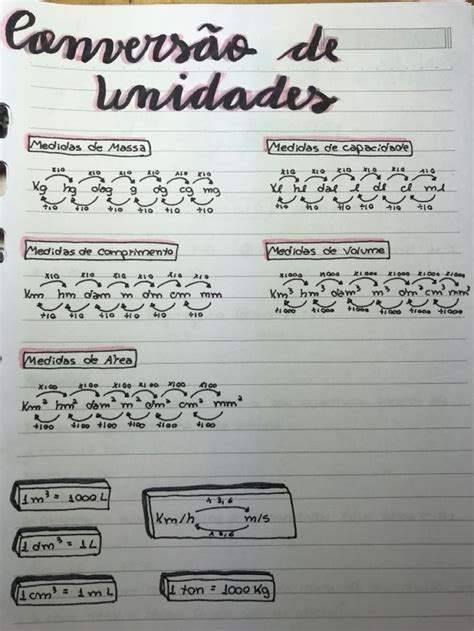 Conversão de
Unidades
Medidas de Massa
x10 x10 x10 x10 x10 x10
Kg hg dag g dg cg mg
÷10 ÷10 ÷10 ÷10 ÷10 ÷10
Medidas de capacidade
x10 x10 x10 x10 x10 x10
kl hl dal l dl cl ml
÷10 ÷10 ÷10 ÷10 ÷10 ÷10
Medidas de comprimento
x10 x10 x10 x10 x10 x10
Km hm dam m dm cm mm
÷10 ÷10 ÷10 ÷10 ÷10 ÷10
Medidas de volume
x1000 x1000 x1000 x1000 x1000 x1000
Km³ hm³ dam³ m³ dm³ cm³ mm³
÷1000 ÷1000 ÷1000 ÷1000 ÷1000 ÷1000
Medidas de Area
x100 x100 x100 x100 x100 x100
Km² hm² dam² m² dm² cm² mm²
÷100 ÷100 ÷100 ÷100 ÷100 ÷100
1m³ = 1000L
1 dm³ = 1L
1cm³ = 1mL
3,6
Km/h m/s
3,6
1 ton = 1000Kg